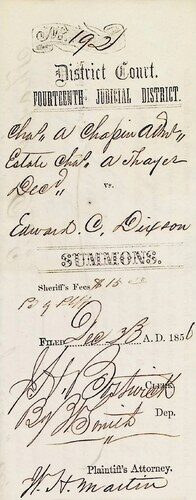 No. 192
District Court.
FOURTEENTH JUDICIAL DISTRICT.
Chas. A Chapin Adm.
Estate Chas. A Thayer
Decd,
vs.
Edward C. Dixson
SUMMONS.
Sheriff's Fees $15
Pd by Plff
FILED Dec 23 A. D. 1856
J. H. Bostwick CLERK
By W Smith Dep.
Plaintiff's Attorney.
W. H. Martin